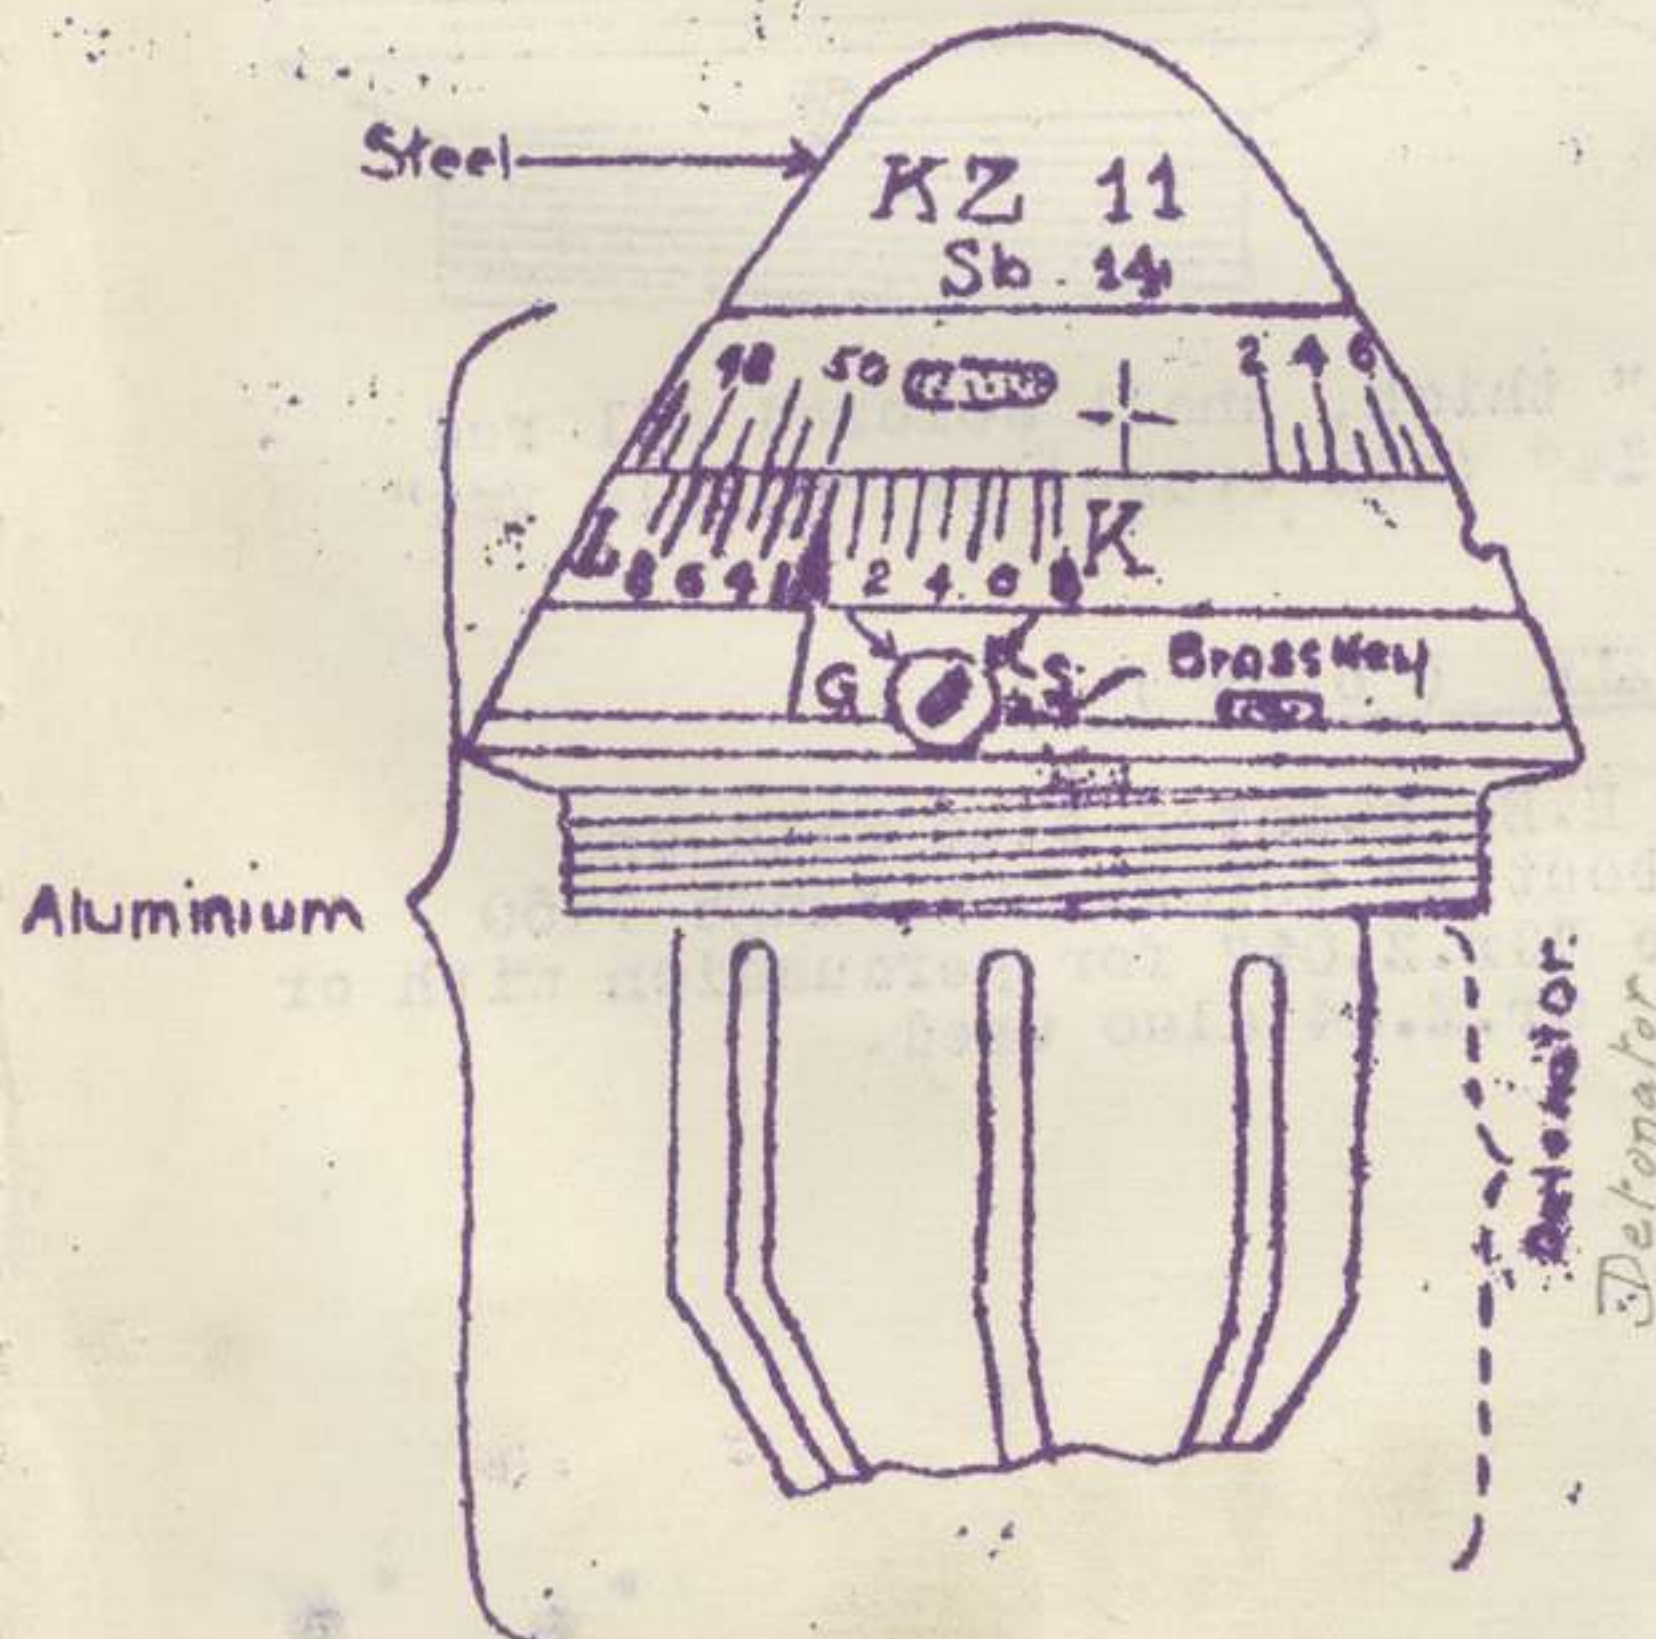 Steel
KZ 11
Sb. 14
48 50 2 4 6
L K
8 6 4 2 4 6 8
G S Brass Key
Aluminium
Detonator.
Detonator